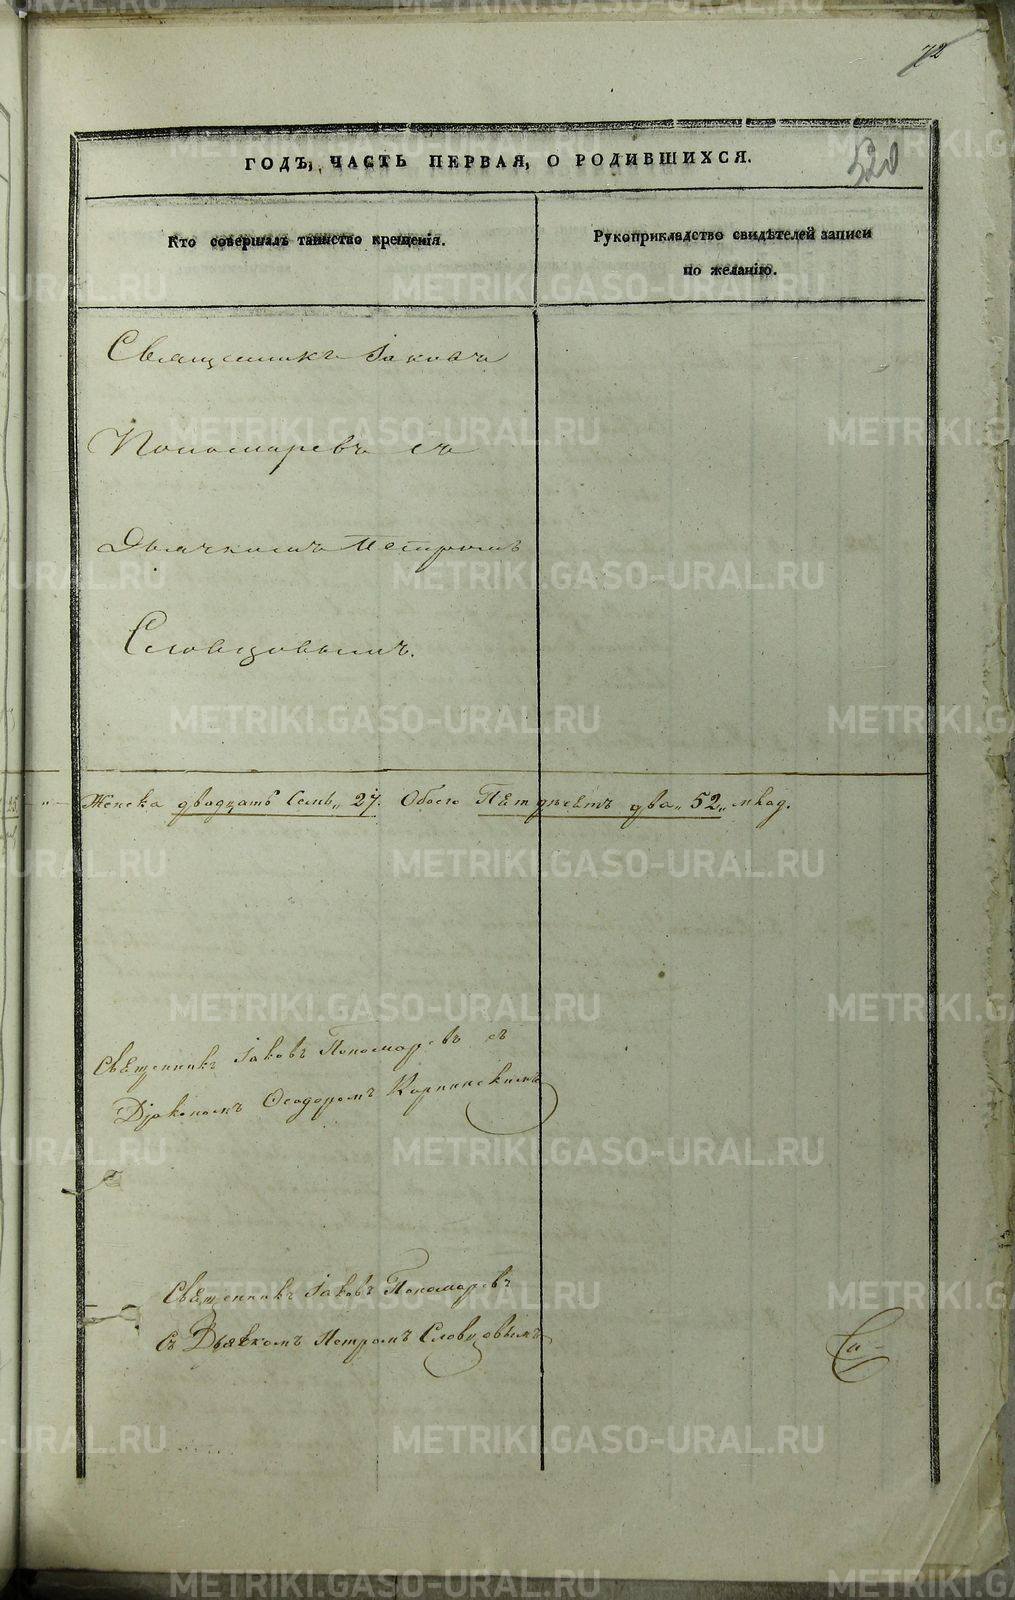 72
520
ГОДЪ, ЧАСТЬ ПЕРВАЯ, О РОДИВШИХСЯ.
Кто совершалъ таинство крещенія.
Рукоприкладство свидѣтелей записи
по желанію.
Священникъ Іаковъ
Пономаревъ съ
Дьячкомъ Петромъ
Словцовымъ.
Женска двадцать семь„ 27. Обоего Пѣтдѣсѣтъ два„ 52„ млад.
Свѣщенникъ Іаковъ Пономаревъ съ
Діакономъ Ѳеодоромъ Карпинскимъ
Свѣщенникъ Іаковъ Пономаревъ
съ Дьячкомъ Петромъ Словцовымъ
METRIKI.GASO-URAL.RU